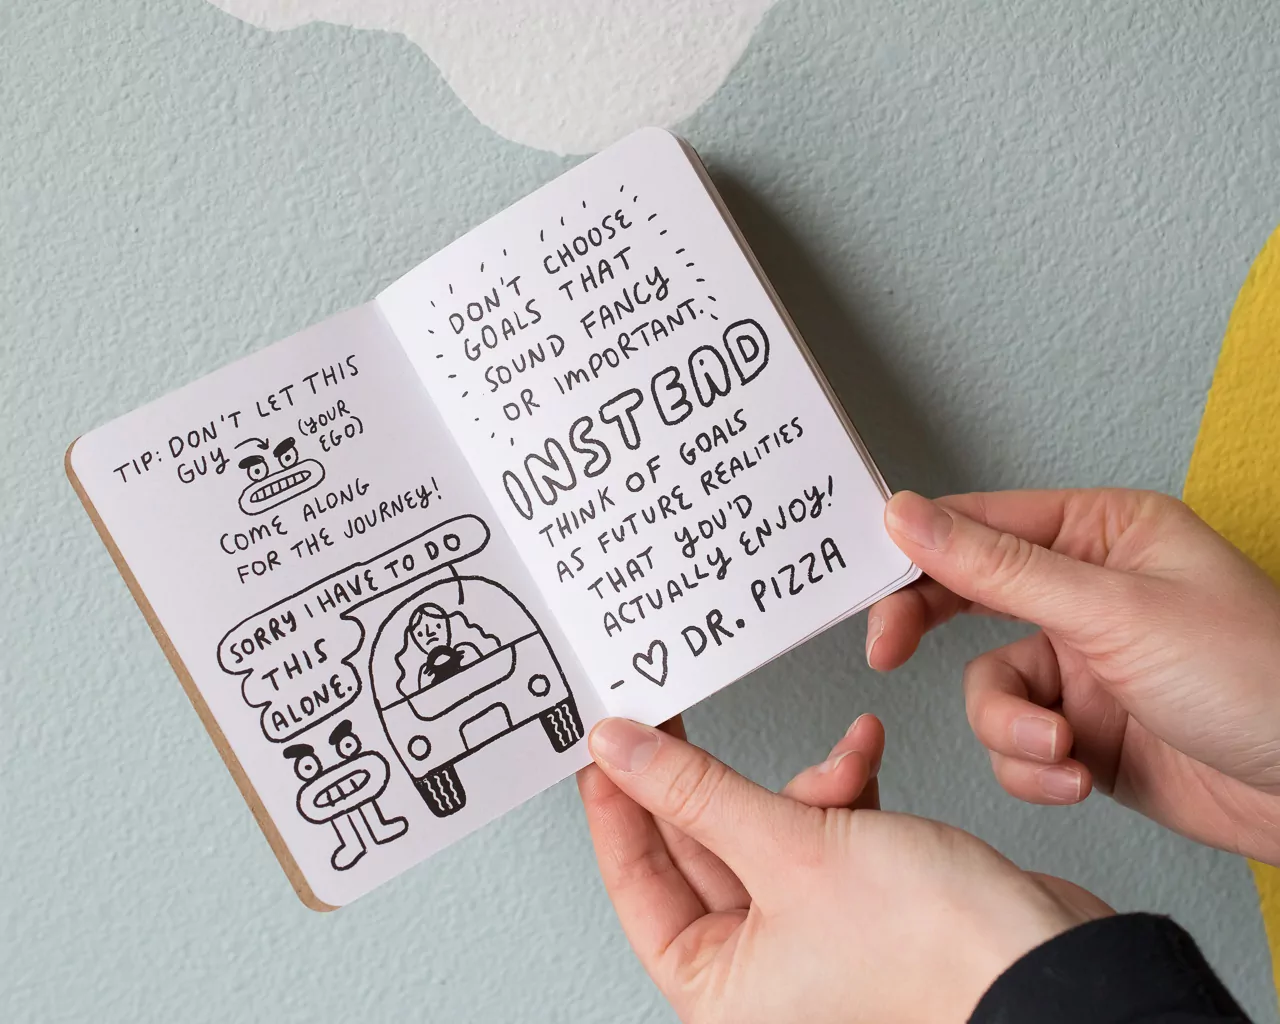 TIP: DON'T LET THIS
GUY (YOUR
EGO)
COME ALONG
FOR THE JOURNEY!
SORRY I HAVE TO DO
THIS
ALONE.
DON'T CHOOSE
GOALS THAT
SOUND FANCY
OR IMPORTANT.
INSTEAD
THINK OF GOALS
AS FUTURE REALITIES
THAT YOU'D
ACTUALLY ENJOY!
- ♡ DR. PIZZA